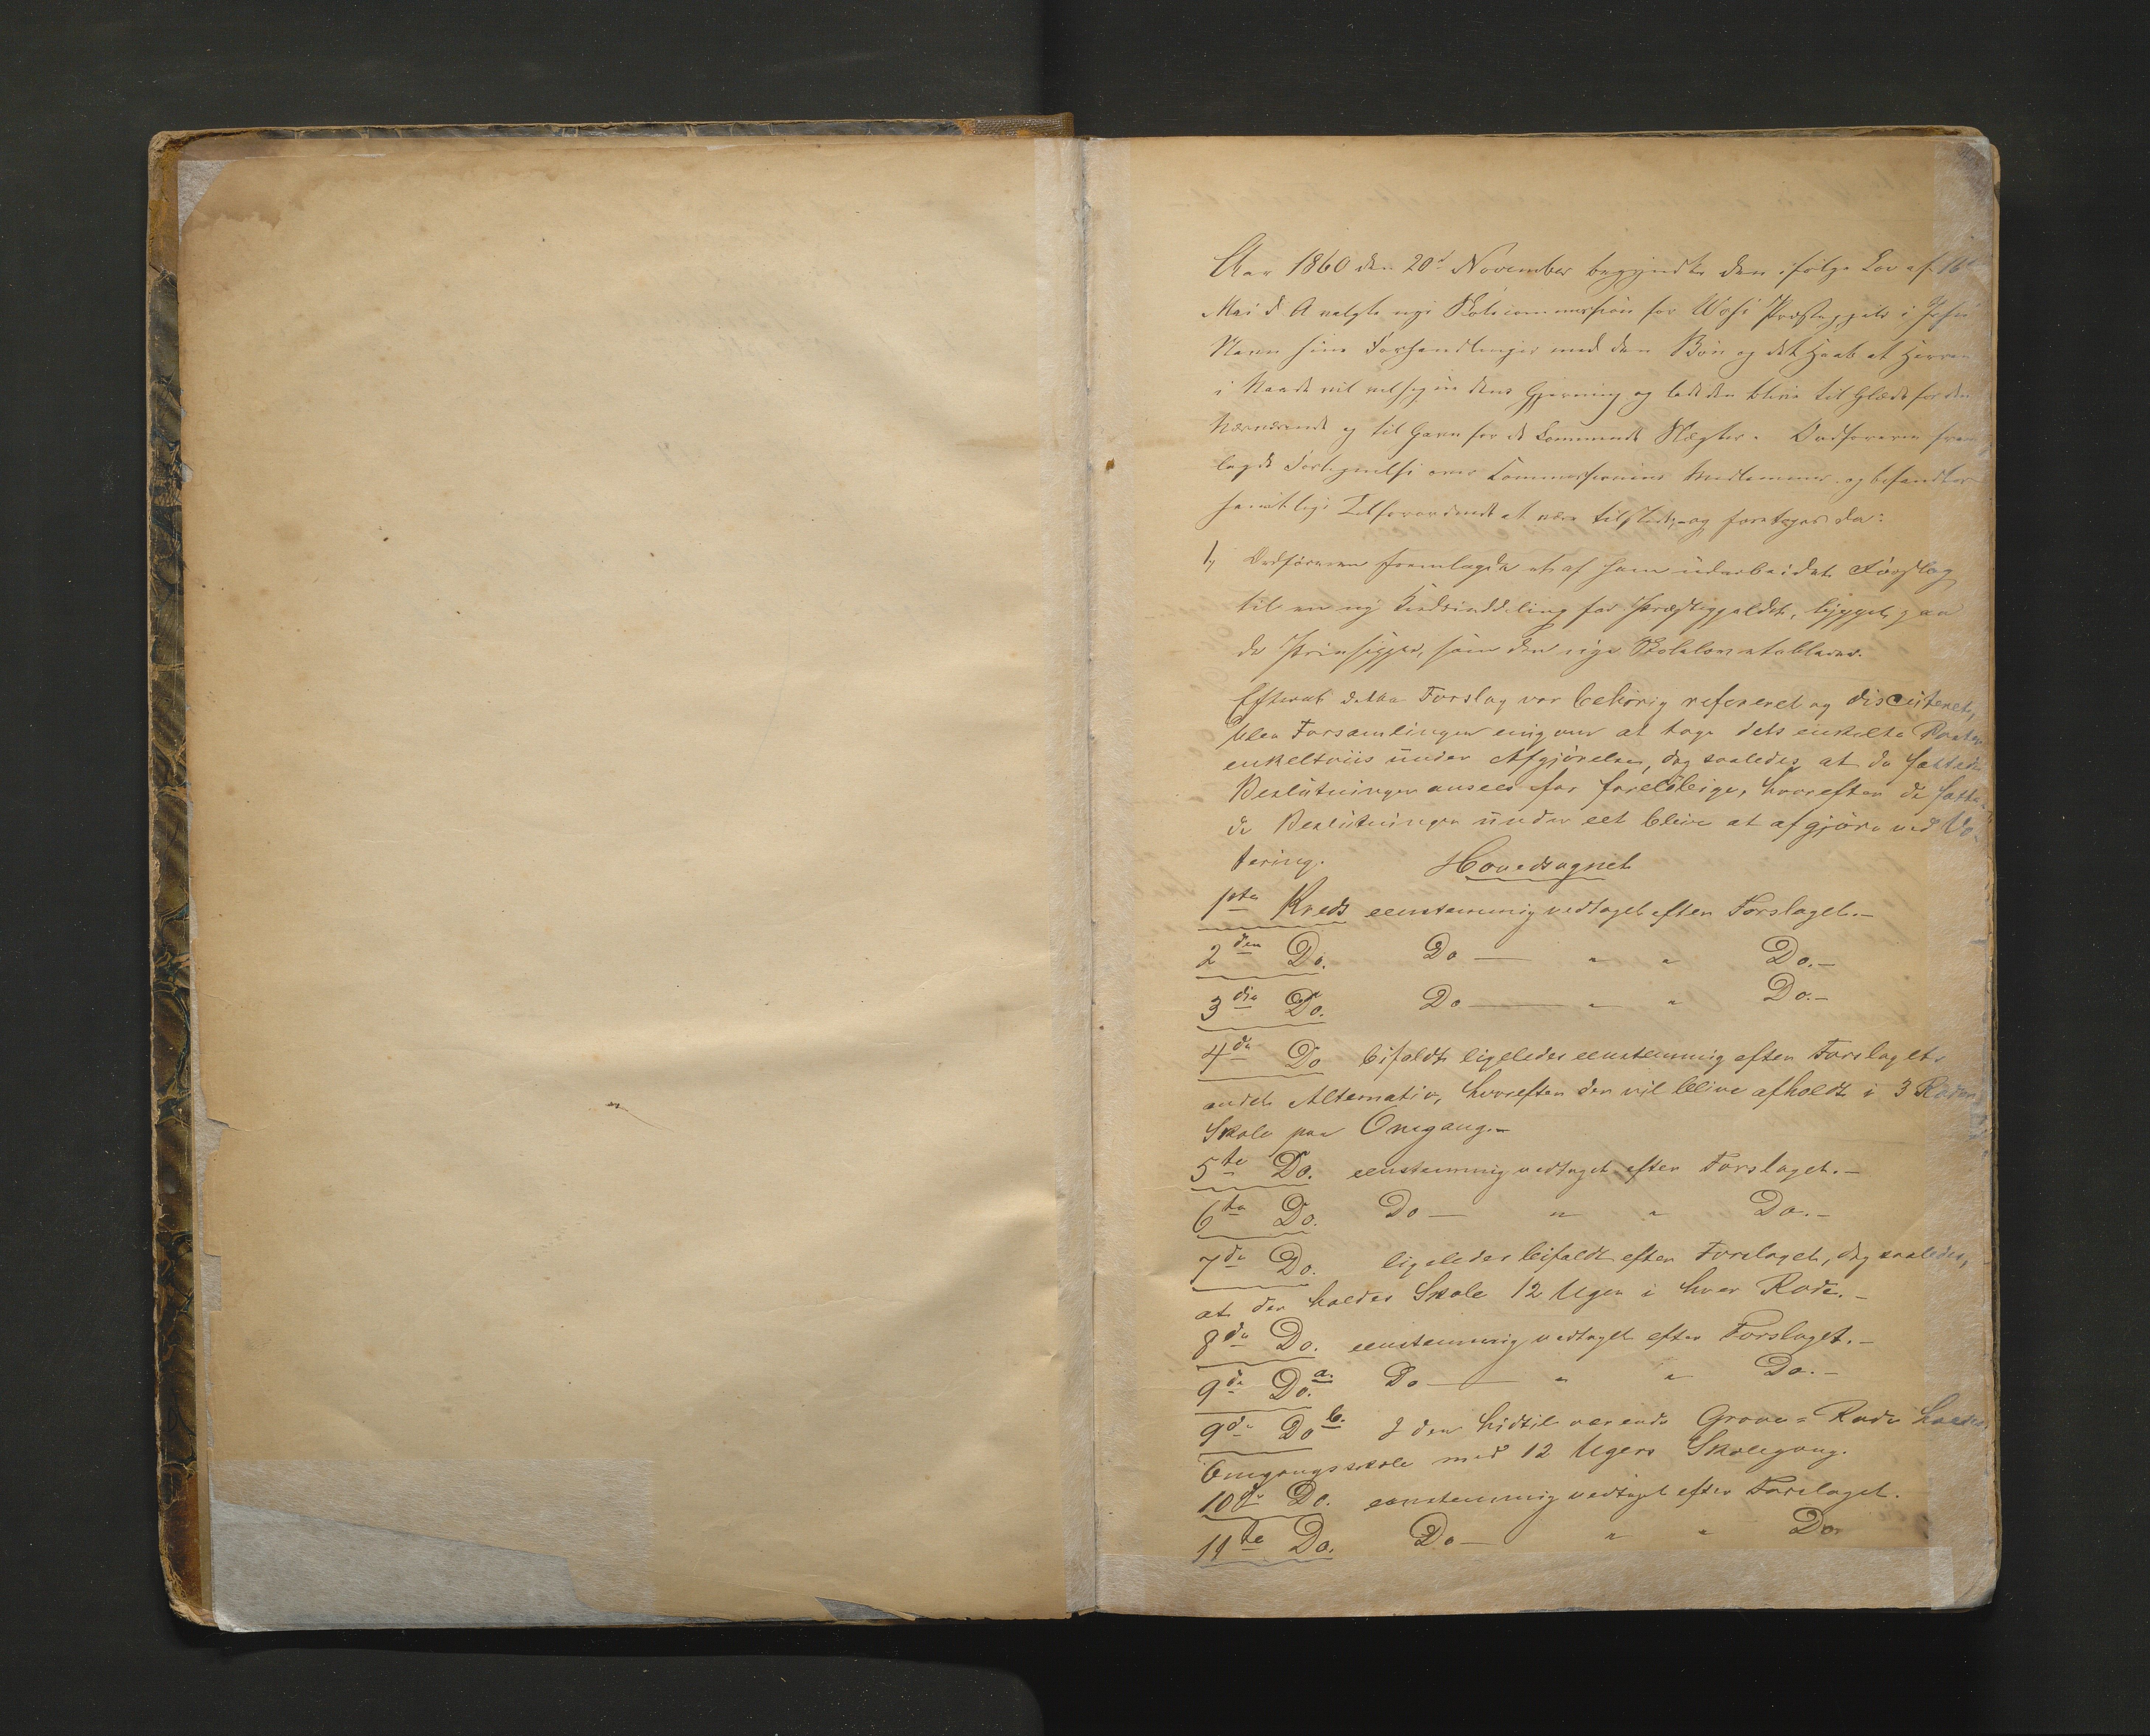 Aar 1860 den 20de November begyndte den ifølge Lov af 16de
Mai d. A valgte nye Skolecommission for Præstegjeld i Jesu
Navn sine Forhandlinger med den Bøn og det Haab at Herren
i Naade vil velsigne dens Gjerning og lade den blive til Glæde for den
Nærværende og til Gavn for de kommende Slægter. Ordføreren frem
lagde Fortegnelse over Commissionens Medlemmer og befandtes
samtlige at være tilstede, og foretoges da:
1, Ordføreren fremlagde et af ham udarbeidet Forslag
til en ny Kredsinddeling for Præstegjeldet, bygget paa
de Principper, som den nye Skolelov etablerer.
Efterat dette Forslag var behørig refereret og discuteret,
blev Forsamlingen enig om at tage dets enkelte Poster
enkeltviis under Afgjørelse, dog saaledes at de fattede
Beslutninger ansees for foreløbige, hvorefter de fatte-
de Beslutninger under eet blive at afgjøre ved Vo-
tering. Hovedsognet
1ste Kreds eenstemmig vedtaget efter Forslaget.—
2den Do. Do — " " Do.—
3die Do. Do — " " Do.—
4de Do bifaldt ligeledes eenstemmig efter Forslagets
andet Alternativ, hvorefter der vil blive afholdt i 3 Roder
Skole paa Omgang.—
5te Do. eenstemmig vedtaget efter Forslaget.—
6te Do. Do — " " Do.—
7de Do. ligeledes bifaldt efter Forslaget, dog saaledes,
at der holdes Skole 12 Uger i hver Rode.—
8de Do. eenstemmig vedtaget efter Forslaget.—
9de Do. a. Do — " " Do.—
9de Do b. I den hidtil værende Grove=Rode holdes
Omgangsskole med 12 Ugers Skolegang.
10de Do. eenstemmig vedtaget efter Forslaget.
11te Do. Do — " " Do.